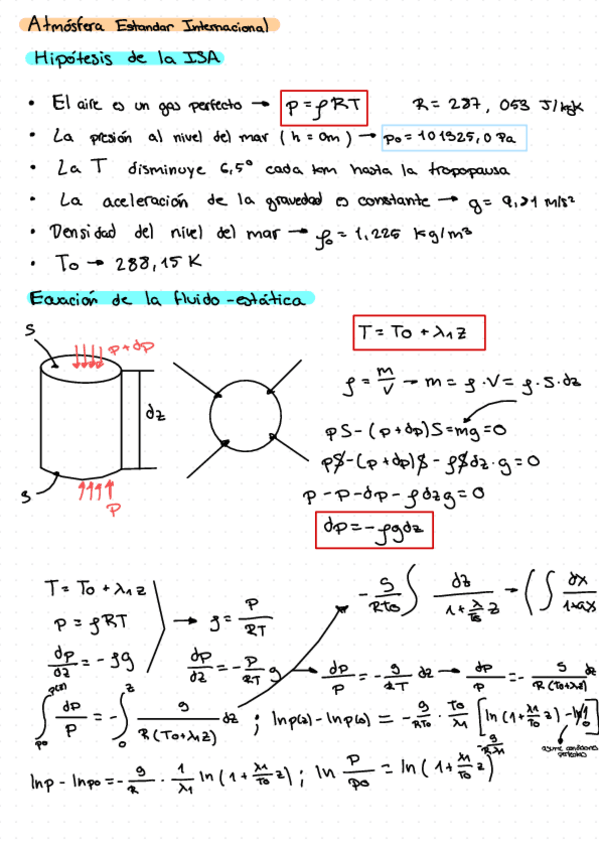 Atmósfera Estandar Internacional
Hipótesis de la ISA
• El aire es un gas perfecto → p = ρRT R = 287,053 J/kgK
• La presión al nivel del mar (h = 0m) → p₀ = 101325,0 Pa
• La T disminuye 6,5° cada km hasta la tropopausa
• La aceleración de la gravedad es constante → g = 9,81 m/s²
• Densidad del nivel del mar → ρ₀ = 1,225 kg/m³
• T₀ → 288,15 K
Ecuación de la fluido-estática
S
p+dp
dz
S
P
T = T₀ + λ₁z
ρ = m/V → m = ρ·V = ρ·S·dz
pS-(p+dp)S=mg=0
pS-(p+dp)S-ρSdz·g=0
p-p-dp-ρdzg=0
dp=-ρgdz
T = T₀ + λ₁z
p = ρRT → ρ = P/RT
dp/dz = -ρg dp/dz = -P/RT g → dp/P = -g/RT dz → dp/P = -g/R(T₀+λ₁z) dz
-g/RT₀ ∫ dz/1+λ/T₀ z → (∫ dx/1+ax
∫ p₀ p(z) dp/P = -∫ 0 z g/R(T₀+λ₁z) dz ; lnp(z)-lnp(0) = -g/RT₀ · T₀/λ₁ [ln(1+λ₁/T₀ z)-ln1]
0
-g/Rλ₁
asume condiciones perfectas
lnp-lnp₀=-g/R · 1/λ₁ ln(1+λ₁/T₀ z) ; ln P/P₀ = ln(1+λ₁/T₀ z)